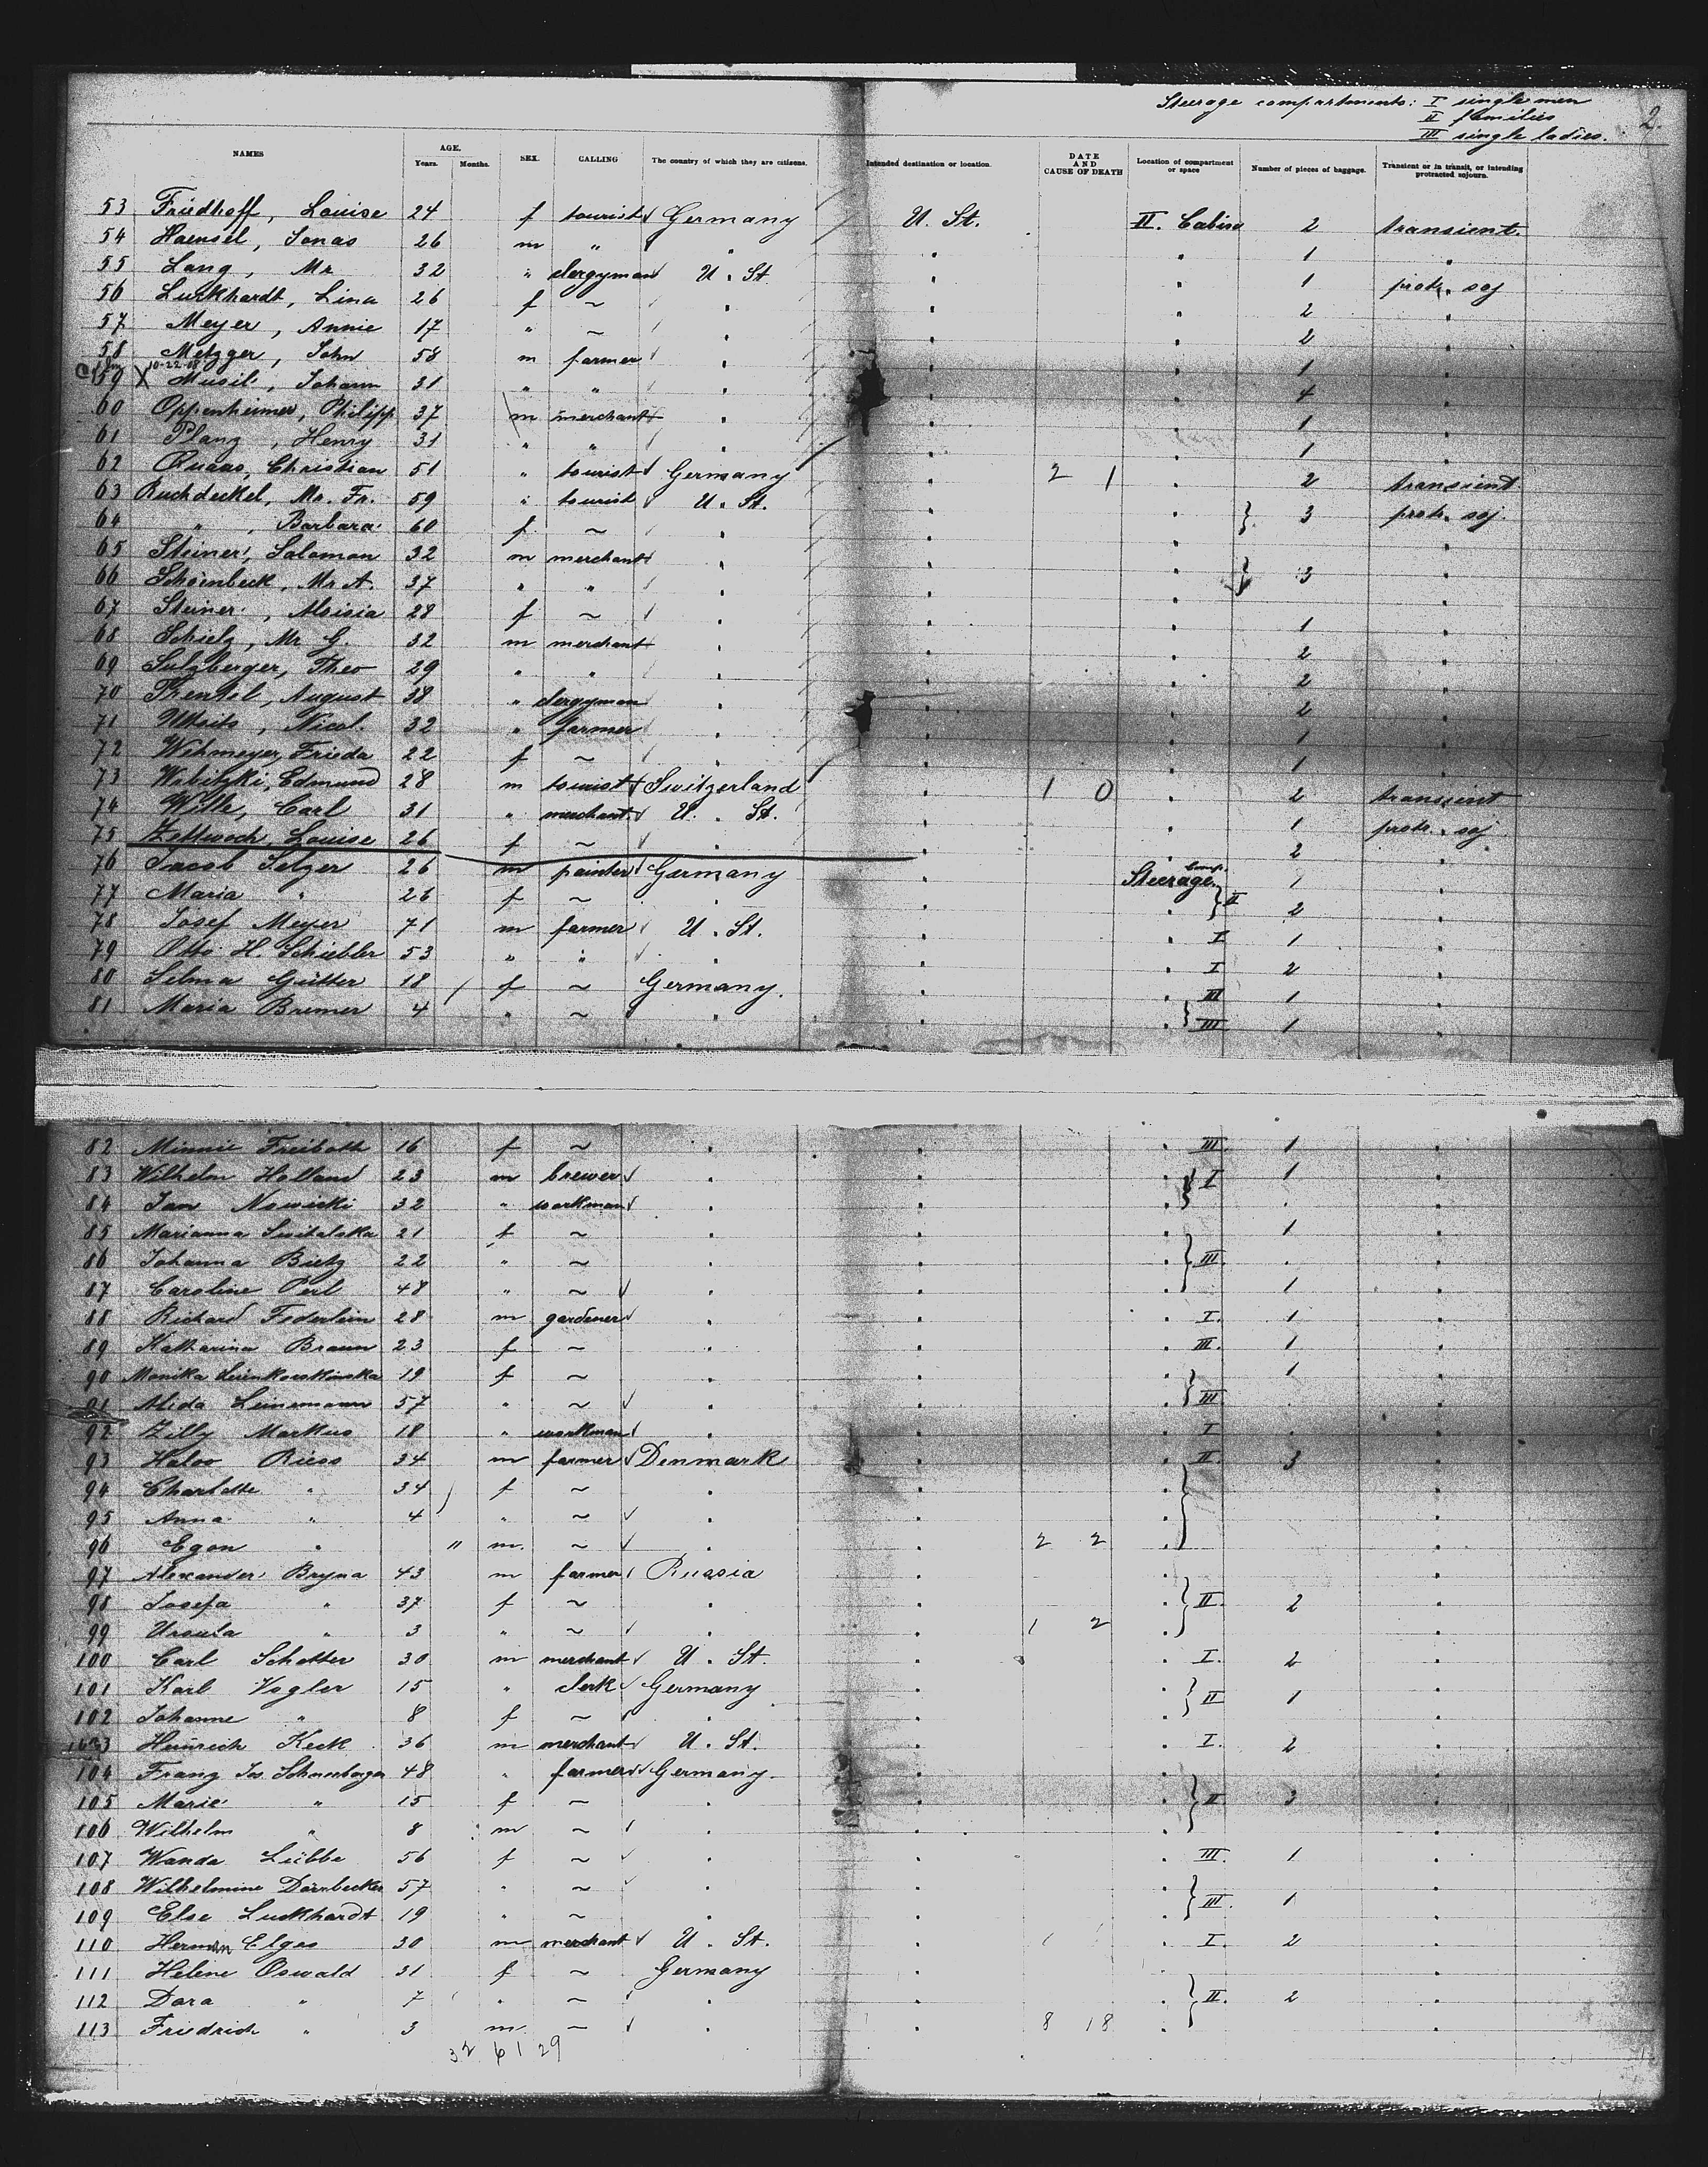 Steerage compartments: I single men
II families
III single ladies.
2.
NAMES AGE. Years. Months. SEX. CALLING The country of which they are citizens. Intended destination or location. DATE AND CAUSE OF DEATH Location of compartment or space Number of pieces of baggage. Transient or in transit, or intending protracted sojourn.
53 Friedhoff, Louise 24 f tourist Germany U. St. II. Cabin 2 transient.
54 Haensel, Jonas 26 m " " " " 1 "
55 Lang, Mr 32 " clergyman U. St. " " 1 protr. soj
56 Luckhardt, Lina 26 f ~ " " " 2 "
57 Meyer, Annie 17 " ~ " " " 2 "
58 Metzger, John 58 m farmer " " " 1 "
10-22-08
59 X Musil, Johann 31 " " " " " 4 "
60 Oppenheimer, Philipp 37 m merchant " " " 1 "
61 Planz, Henry 31 " " " " " 1 "
62 Ruaas, Christian 51 " tourist Germany " 2 1 " 2 transient
63 Ruchdeckel, Mr. Fr. 59 " tourist U. St. " " } 3 protr. soj.
64 " , Barbara 60 f ~ " " " "
65 Steiner, Salomon 32 m merchant " " " } 3 "
66 Schoinbeck, Mr A. 37 " " " " " "
67 Steiner, Aloisia 28 f ~ " " " 1 "
68 Schielz, Mr G. 32 m merchant " " " 2 "
69 Sulzberger, Theo 29 " " " " " 2 "
70 Trentel, August 38 " clergyman " " " 2 "
71 Nicol. 32 " farmer " " " 1 "
72 Wehmeyer, Frieda 22 f ~ " " " 1 "
73 Wabitzki, Edmund 28 m tourist Switzerland " 1 0 " 2 transient
74 Wilk, Carl 31 " merchant U. St. " " 1 protr. soj
75 Zettwoch, Louise 26 f ~ " " " 2 "
76 Jacob Selzer 26 m painter Germany " Steerage Comp. 1 "
77 Maria " 26 f ~ " " " } II 2 "
78 Josef Meyer 71 m farmer U. St. " " I 1 "
79 Otto H. Schiebler 53 " " " " " I 2 "
80 Selma Gütter 18 f ~ Germany. " " III 1 "
81 Maria Bremer 4 " ~ " " " } III 1 "
82 Minnie Freiboth 16 f ~ " " " III. 1 "
83 Wilhelm Holland 23 m brewer " " " } I 1 "
84 Jan Nowicki 32 " workman " " " " "
85 Marianna Switalska 21 f ~ " " " 1 "
86 Johanna Bietz 22 " ~ " " " } III. " "
87 Caroline Perl 48 " ~ " " " 1 "
88 Richard Federlein 28 m gardener " " " I. 1 "
89 Katharina Braun 23 f ~ " " " III. 1 "
90 Monika 19 f ~ " " " 1 "
91 Alida Leinemann 57 " ~ " " " } III. " "
92 Zilly Markus 18 " workman " " " I " "
93 Haloo Riess 34 m farmer Denmark " " II. 3 "
94 Charlotte " 34 f ~ " " " "
95 Anna " 4 " ~ " " " } "
96 Egon " " m. ~ " " 2 2 " "
97 Alexander Bryna 43 m farmer Russia " " "
98 Josefa " 37 f ~ " " " } II. 2 "
99 Ursula " 3 " ~ " " 1 2 " "
100 Carl Schetter 30 m merchant U. St. " " I. 2 "
101 Karl Vogler 15 " clerk Germany " " } II 1 "
102 Johanne " 8 f ~ " " " "
103 Heinrich Keck 36 m merchant U. St. " " I. 2 "
104 Franz Jos. Schneeberger 48 " farmer Germany. " " "
105 Marie " 15 f ~ " " " } II 3 "
106 Wilhelm " 8 m ~ " " " "
107 Wanda Lübbe 56 f ~ " " " III. 1 "
108 Wilhelmine Dörnbecker 57 " ~ " " " "
109 Else Luckhardt 19 " ~ " " " } III. 1 "
110 Herman Elges 30 m merchant U. St. " " I. 2 "
111 Helene Oswald 31 f ~ Germany " " "
112 Dora " 7 " ~ " " " } II. 2 "
113 Friedrich " 3 m ~ " " 8 18 " "
32 61 29